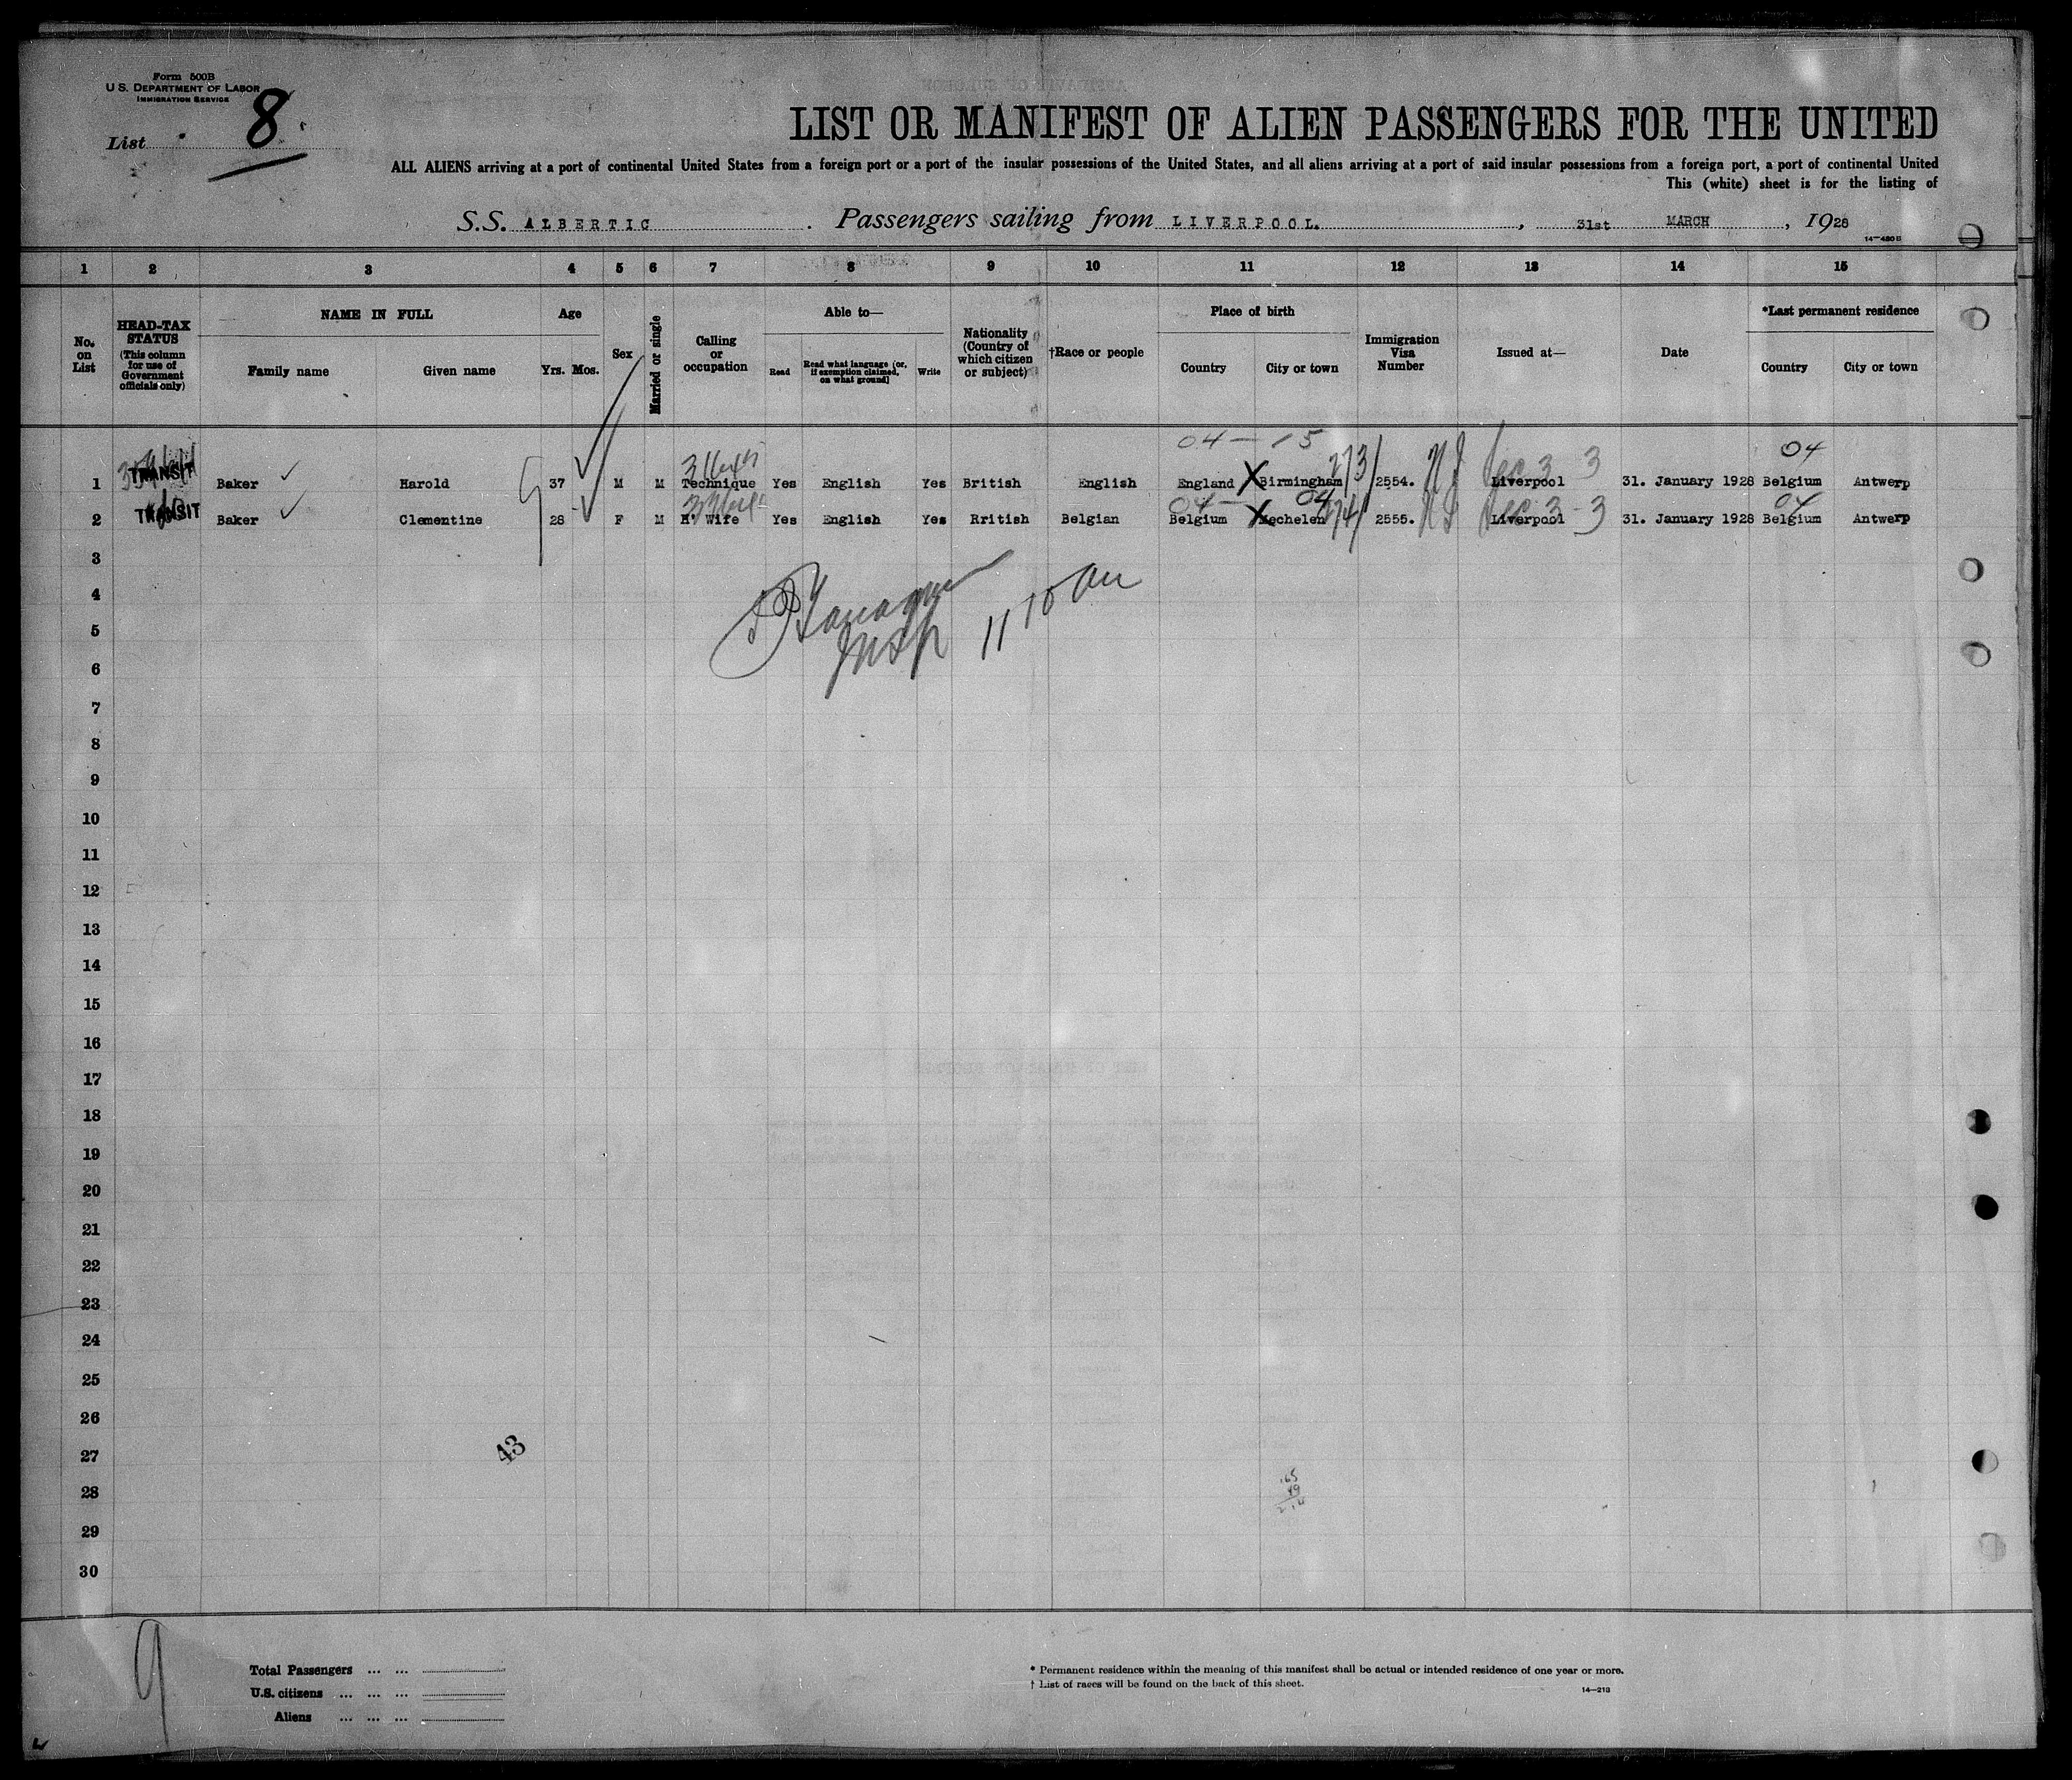 Form 500B
U. S. DEPARTMENT OF LABOR
IMMIGRATION SERVICE
List 8
LIST OR MANIFEST OF ALIEN PASSENGERS FOR THE UNITED
ALL ALIENS arriving at a port of continental United States from a foreign port or a port of the insular possessions of the United States, and all aliens arriving at a port of said insular possessions from a foreign port, a port of continental United
This (white) sheet is for the listing of
S.S. ALBERTIC. Passengers sailing from LIVERPOOL., 31st MARCH, 1928
14—480 B
1 2 3 4 5 6 7 8 9 10 11 12 13 14 15
No. on List
HEAD-TAX STATUS (This column for use of Government officials only)
NAME IN FULL
Family name Given name
Age
Yrs. Mos.
Sex
Married or single
Calling or occupation
Able to—
Read Read what language (or, if exemption claimed, on what ground) Write
Nationality (Country of which citizen or subject)
†Race or people
Place of birth
Country City or town
Immigration Visa Number
Issued at—
Date
*Last permanent residence
Country City or town
04 — 15 04
1 TRANSIT Baker Harold 37 M M Technique Yes English Yes British English England X Birmingham 273 2554. Liverpool 3 31. January 1928 Belgium Antwerp
04 — 04 04
2 TRANSIT Baker Clementine 28 F M H. Wife Yes English Yes Rritish Belgian Belgium X Mechelen 274 2555. Liverpool 3 31. January 1928 Belgium Antwerp
3
4
5
Insp 11 10 am
6
7
8
9
10
11
12
13
14
15
16
17
18
19
20
21
22
23
24
25
26
27
43
28
29
30
9
Total Passengers ... ...
U.S. citizens ... ... ...
Aliens ... ... ...
* Permanent residence within the meaning of this manifest shall be actual or intended residence of one year or more.
† List of races will be found on the back of this sheet.
14—213